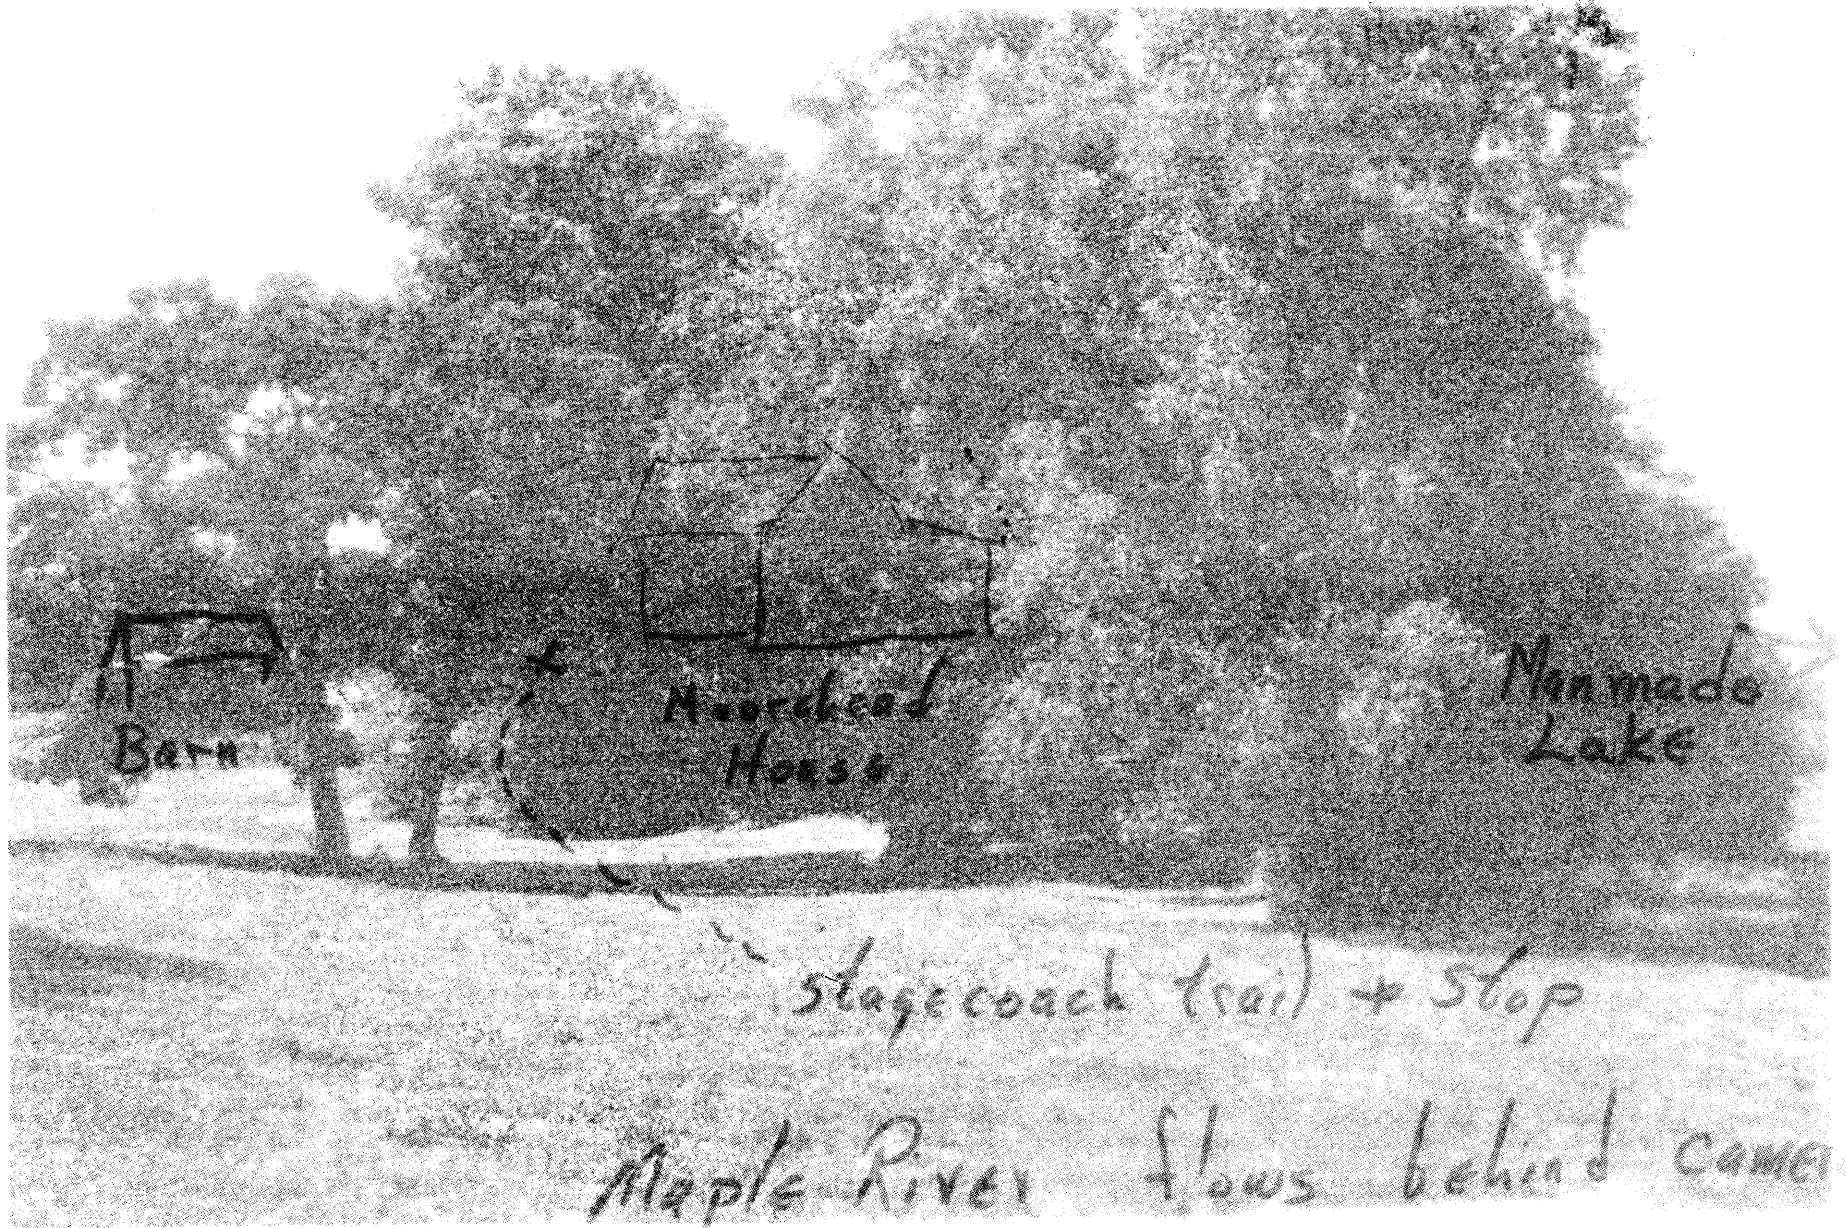 Barn
Moorehead
House
Manmade
Lake
stagecoach trail + stop
Maple River flows behind camer